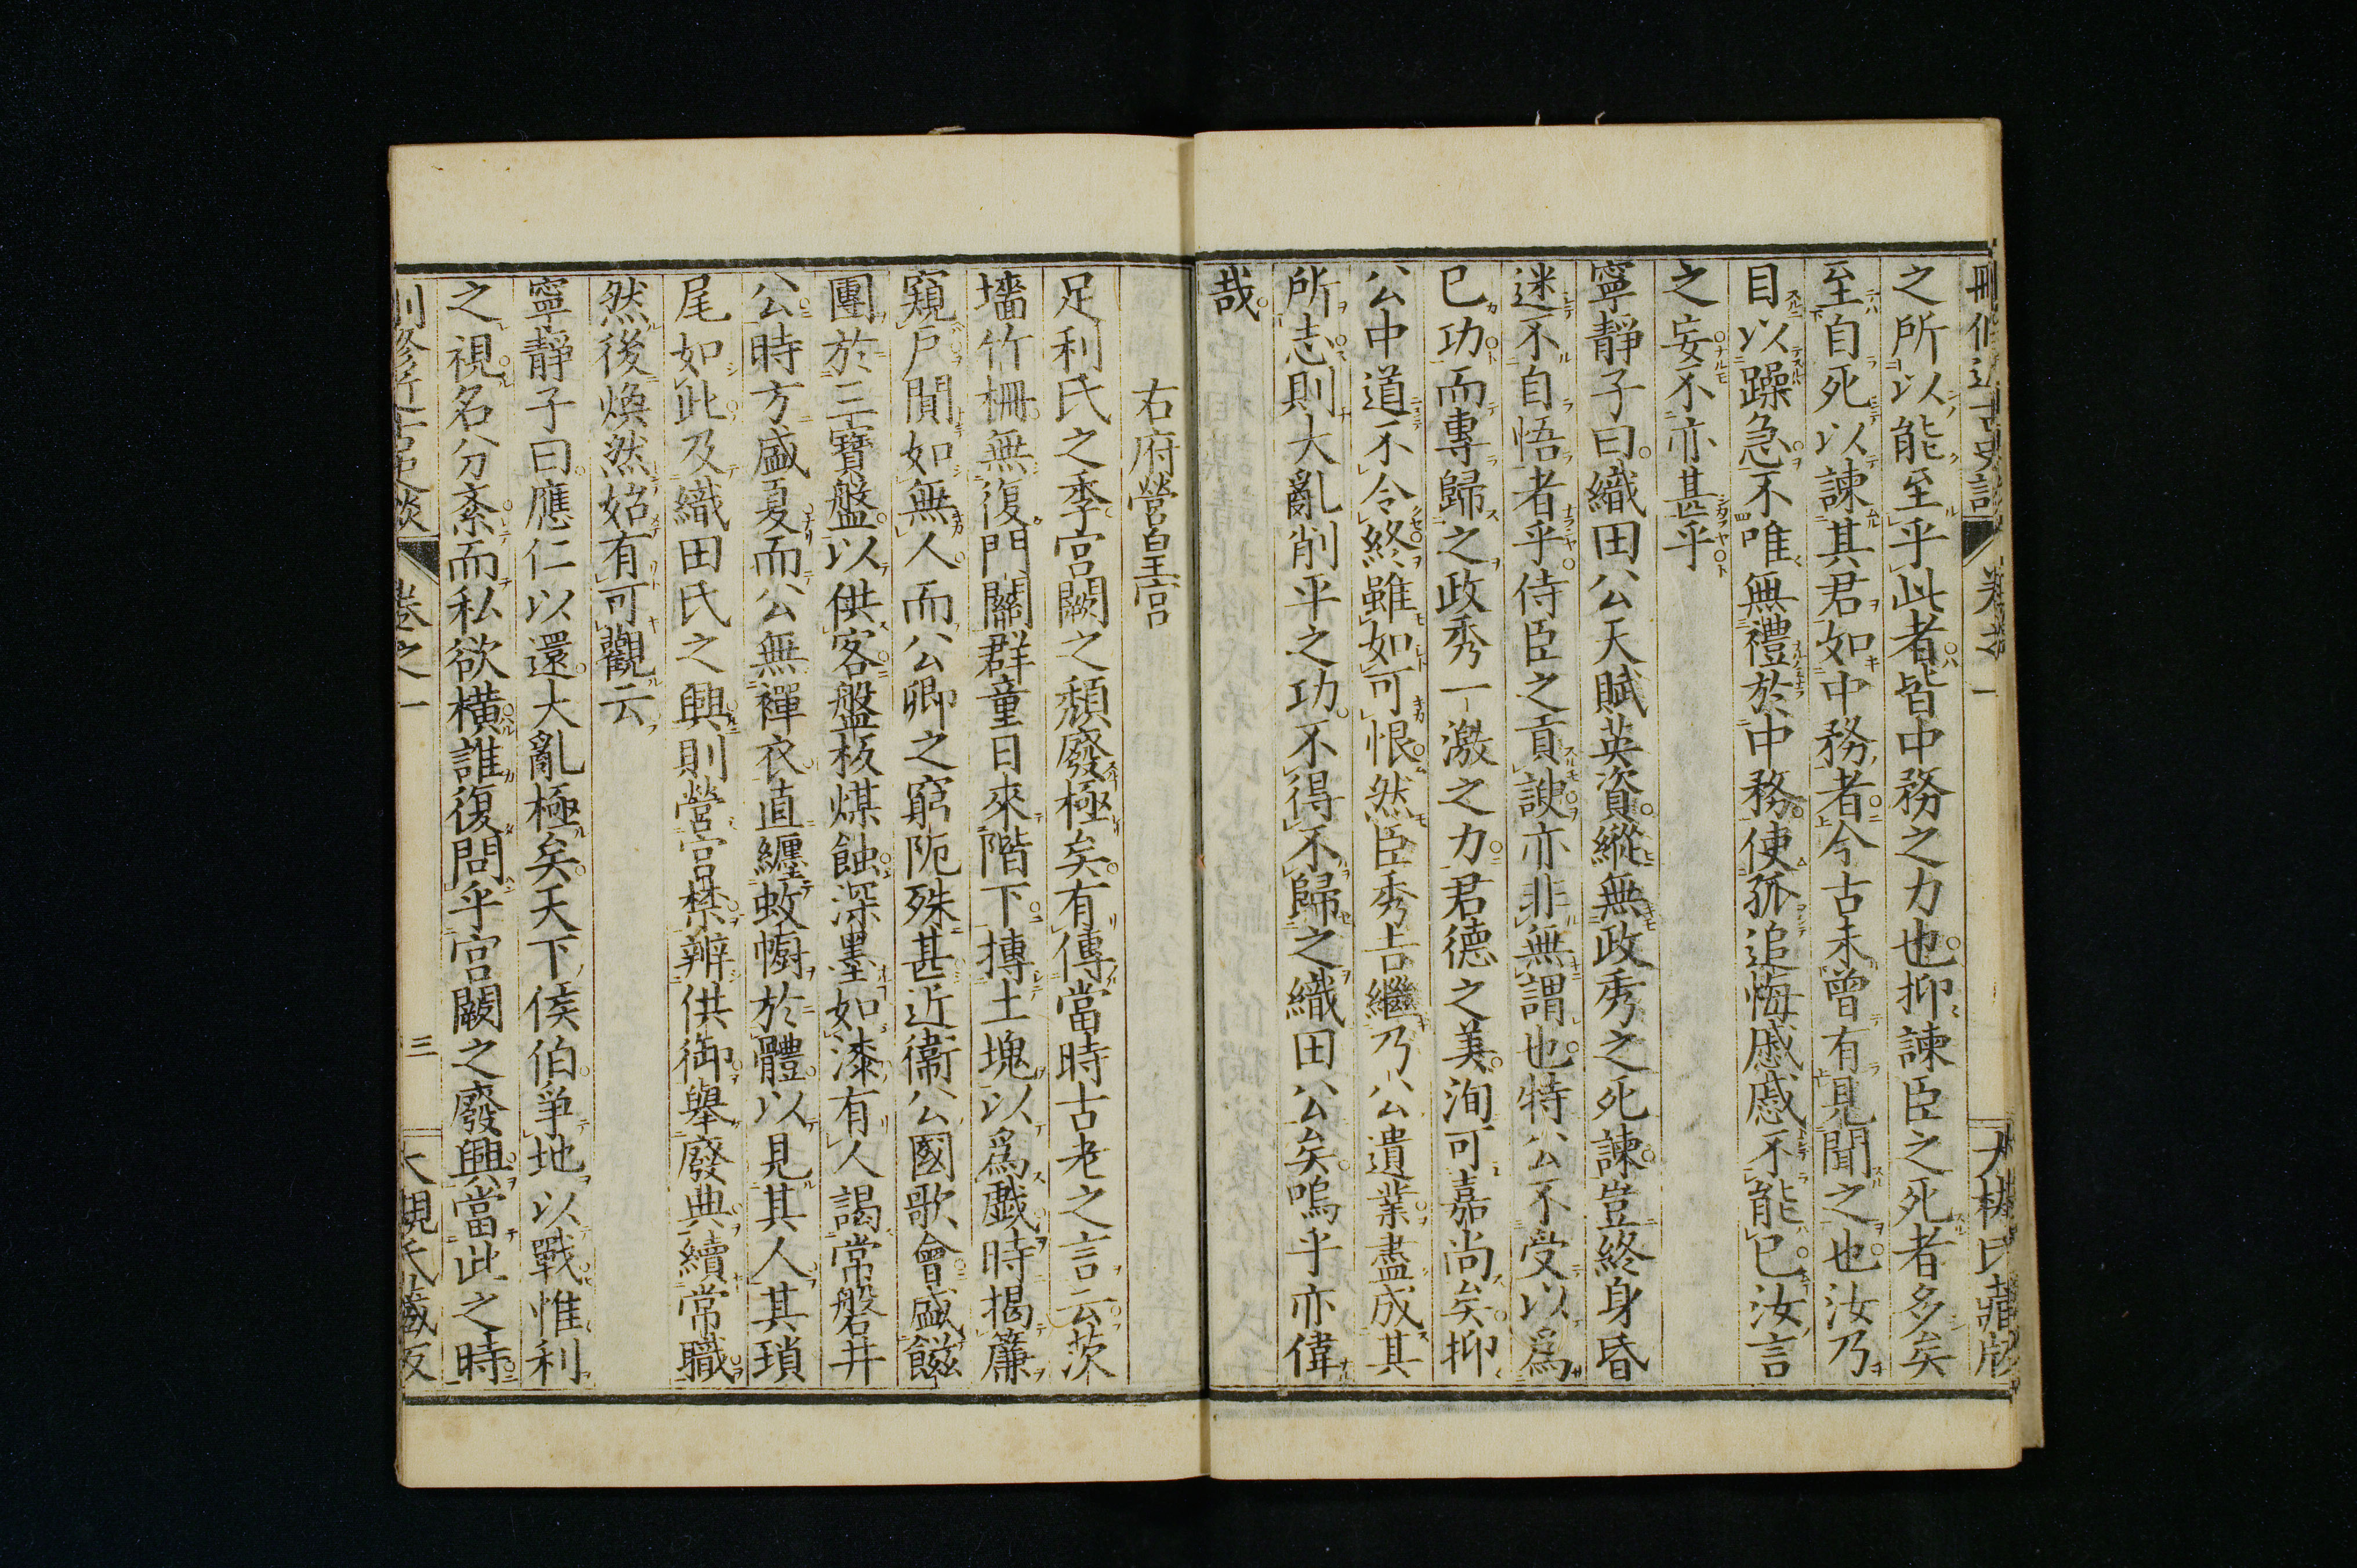 之所以能至乎此者皆中務之力也抑諫臣之死者多矣
至自死以諫其君如中務者今古未曾有見聞之也汝乃
目以躁急不唯無禮於中務使孤追悔慼慼不能已汝言
之妄不亦甚乎
寧靜子曰織田公天賦英資縱無政秀之死諫豈終身昏
迷不自悟者乎侍臣之貢諛亦非無謂也特公不受以爲
已功而專歸之政秀一激之力君德之美洵可嘉尚矣抑
公中道不令終雖如可恨然臣秀吉繼乃公遺業盡成其
所志則大亂削平之功不得不歸之織田公矣嗚乎亦偉
哉
右府營皇宮
足利氏之季宮闕之頹廢極矣有傳當時古老之言云茨
墻竹柵無復門關群童日來階下摶土塊以爲戲時揭簾
窺戶閴如無人而公卿之窮阨殊甚近衞公國歌會盛餈
團於三寶盤以供客盤板煤蝕深墨如漆有人謁常磐井
公時方盛夏而公無襌衣直纏蚊幮於體以見其人其瑣
尾如此及織田氏之興則營宮禁辨供御舉廢典續常職
然後煥然始有可觀云
寧靜子曰應仁以還大亂極矣天下侯伯爭地以戰惟利
之視名分紊而私欲橫誰復問乎宮闕之廢興當此之時
卷之一
三
大槻氏藏版